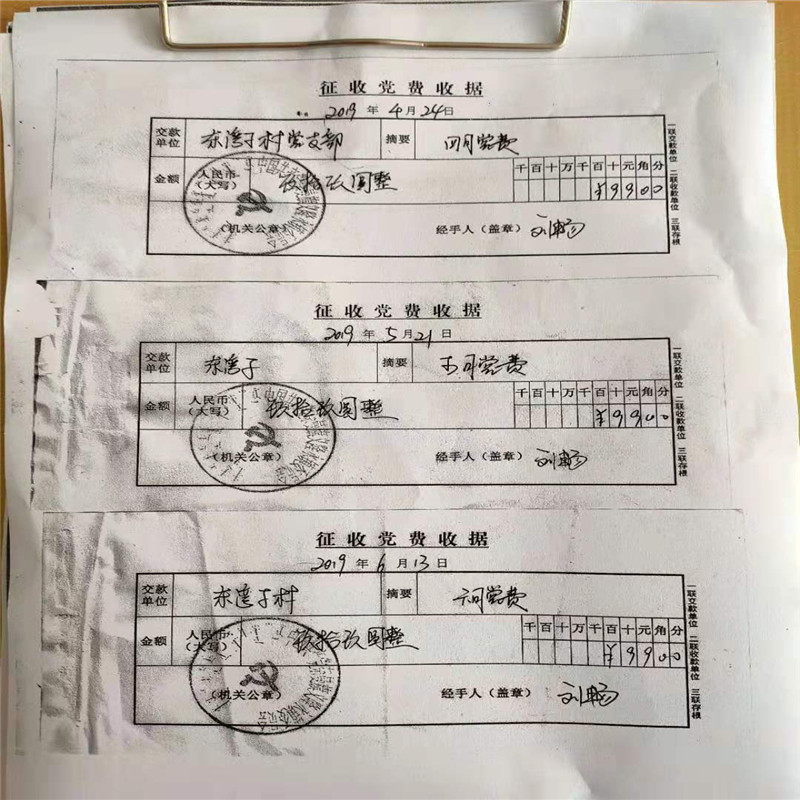 征收党费收据
2019年4月24日
交款单位 东湾子村党支部 摘要 四月党费
金额 人民币(大写) 玖拾玖圆整 千百十万千百十元角分 ¥9900
(机关公章) 经手人（盖章） 刘畅
一联交款单位 二联收款单位 三联存根
征收党费收据
2019年5月21日
交款单位 东湾子 摘要 五月党费
金额 人民币(大写) 玖拾玖圆整 千百十万千百十元角分 ¥9900
(机关公章) 经手人（盖章） 刘畅
一联交款单位 二联收款单位 三联存根
征收党费收据
2019年6月13日
交款单位 东湾子村 摘要 六月党费
金额 人民币(大写) 玖拾玖圆整 千百十万千百十元角分 ¥9900
(机关公章) 经手人（盖章） 刘畅
一联交款单位 二联收款单位 三联存根